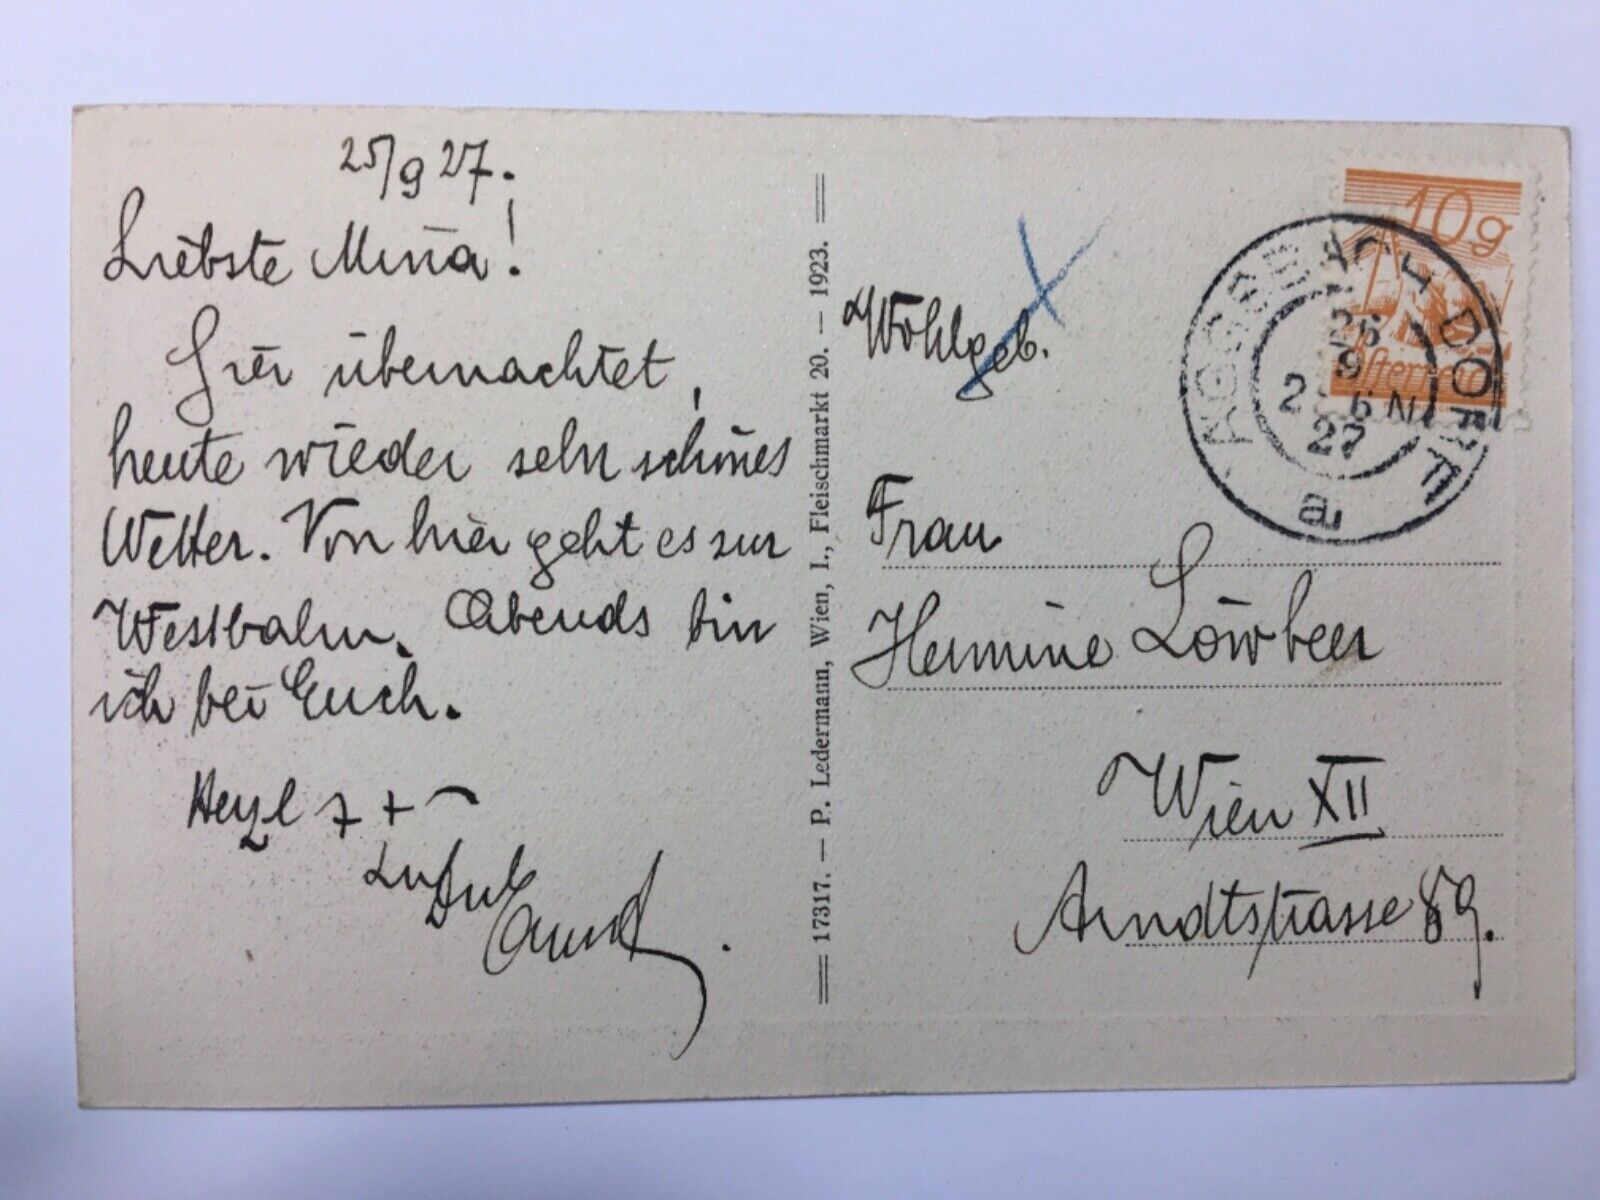 25/9 27.
Liebste Mina!
Hier übernachtet,
heute wieder sehr schönes
Wetter. Von hier geht es zur
Westbahn. Abends bin
ich bei Euch.
17317. — P. Ledermann, Wien, I., Fleischmarkt 20. — 1923.
10g
Österreich
AGGSBACH DORF
26
9
2 6 N
27
a
Wohlgeb.
Frau
Hermine Löwbeer
Wien XII
Arndtstrasse 89.